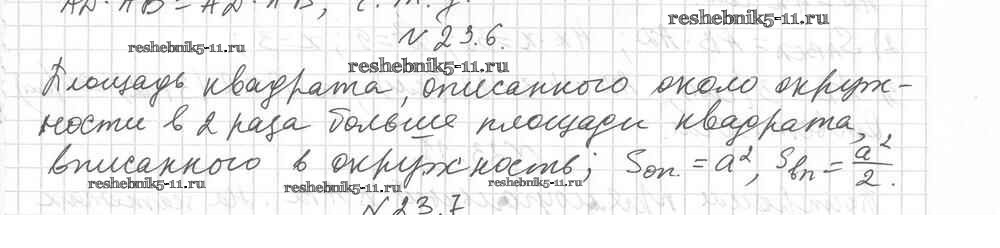 AD · AB = AD · AB, ч. т. д.
reshebnik5-11.ru
N 23.6.
reshebnik5-11.ru
reshebnik5-11.ru
Площадь квадрата, описанного около окруж-
ности в 2 раза больше площади квадрата,
вписанного в окружность; Sоп. = a², Sвп = a²/2.
reshebnik5-11.ru reshebnik5-11.ru reshebnik5-11.ru
N 23.7